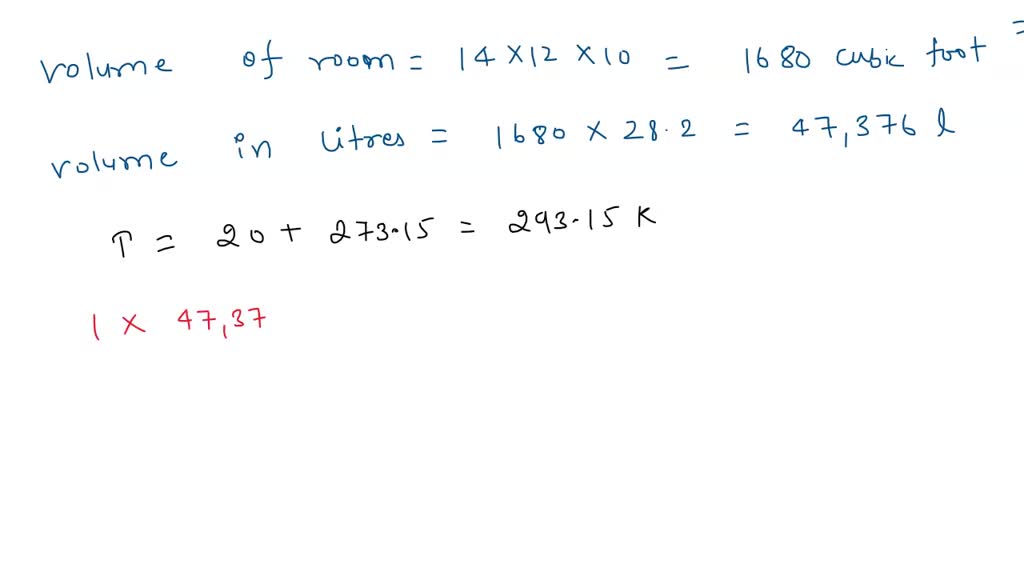 volume of room = 14 × 12 × 10 = 1680 cubic foot =
volume in litres = 1680 × 28.2 = 47,376 l
T = 20 + 273.15 = 293.15 K
1 × 47,37